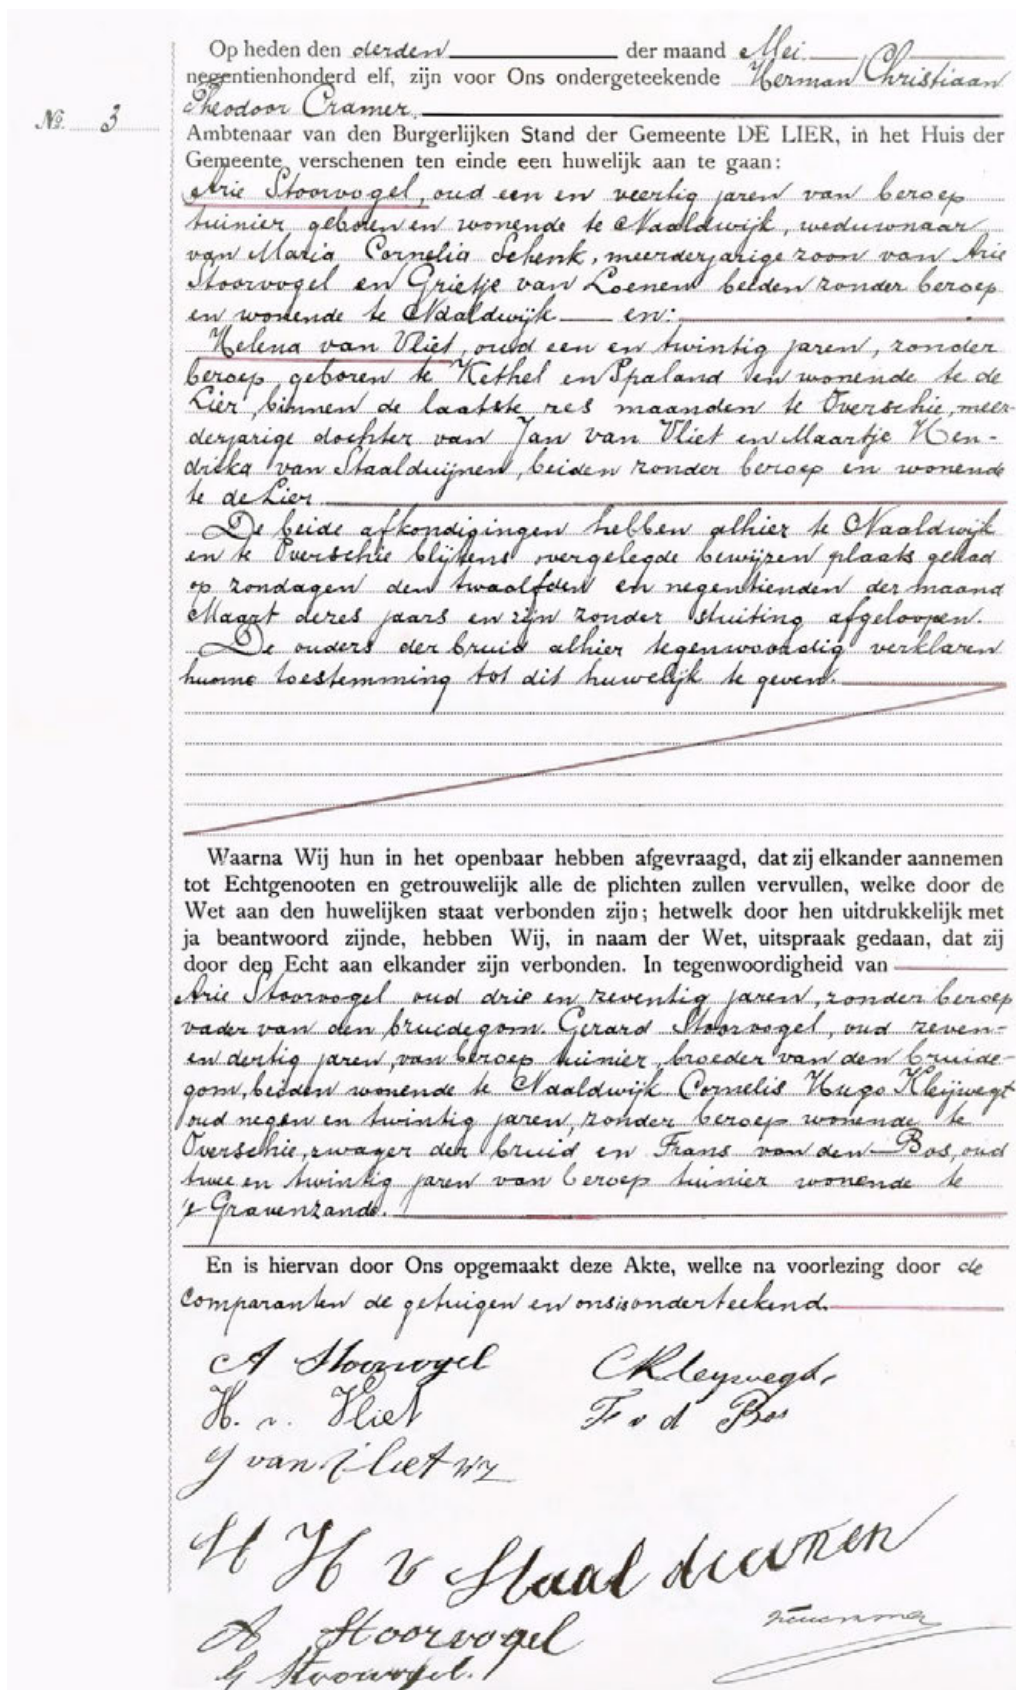 Op heden den derden der maand Mei
negentienhonderd elf, zijn voor Ons ondergeteekende Herman Christiaan
Theodoor Cramer
No. 3
Ambtenaar van den Burgerlijken Stand der Gemeente DE LIER, in het Huis der
Gemeente, verschenen ten einde een huwelijk aan te gaan:
Arie Stoorvogel, oud een en veertig jaren van beroep
tuinier geboren en wonende te Naaldwijk, weduwnaar
van Maria Cornelia Schenk, meerderjarige zoon van Arie
Stoorvogel en Grietje van Loenen beiden zonder beroep
en wonende te Naaldwijk en:
Helena van Vliet, oud een en twintig jaren, zonder
beroep, geboren te Kethel en Spaland en wonende te de
Lier, binnen de laatste zes maanden te Overschie, meer-
derjarige dochter van Jan van Vliet en Maartje Hen-
drika van Staalduijnen, beiden zonder beroep en wonende
te de Lier
De beide afkondigingen hebben alhier te Naaldwijk
en te Overschie blijkens overgelegde bewijzen plaats gehad
op zondagen den twaalfden en negentienden der maand
Maart dezes jaars en zijn zonder stuiting afgeloopen.
De ouders der bruid alhier tegenwoordig verklaren
hunne toestemming tot dit huwelijk te geven.
Waarna Wij hun in het openbaar hebben afgevraagd, dat zij elkander aannemen
tot Echtgenooten en getrouwelijk alle de plichten zullen vervullen, welke door de
Wet aan den huwelijken staat verbonden zijn; hetwelk door hen uitdrukkelijk met
ja beantwoord zijnde, hebben Wij, in naam der Wet, uitspraak gedaan, dat zij
door den Echt aan elkander zijn verbonden. In tegenwoordigheid van
Arie Stoorvogel oud drie en zeventig jaren, zonder beroep
vader van den bruidegom. Gerard Stoorvogel, oud zeven-
en dertig jaren, van beroep tuinier, broeder van den bruide-
gom, beiden wonende te Naaldwijk. Cornelis Hugo Kleijwegt
oud negen en twintig jaren, zonder beroep wonende te
Overschie, zwager der bruid en Frans van den Bos, oud
twee en twintig jaren van beroep tuinier wonende te
's Gravenzande.
En is hiervan door Ons opgemaakt deze Akte, welke na voorlezing door de
comparanten de getuigen en ons is onderteekend.
A Stoorvogel CKleywegt
H. v. Vliet F v d Bos
J van Vliet WZ
M H v Staalduinen
A Stoorvogel
G Stoorvogel.